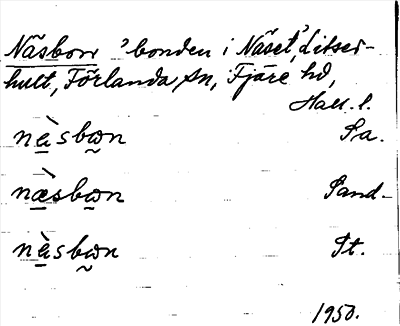 Näsbon 'bonden i Näset', Litser-
hult, Förlanda sn, Fjäre hd,
Hall. l.
nàsbωn Pa.
næ̀sbωn Pand-
nàsbωn Pt.
1950.